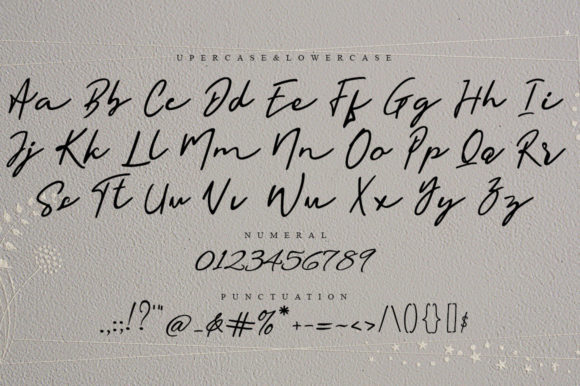 UPERCASE&LOWERCASE
Aa Bb Cc Dd Ee Ff Gg Hh Ii
Jj Kk Ll Mm Nn Oo Pp Qq Rr
Ss Tt Uu Vv Ww Xx Yy Zz
NUMERAL
0123456789
PUNCTUATION
.,:;!?'" @_&#%* +-=~<>/\(){}[]$